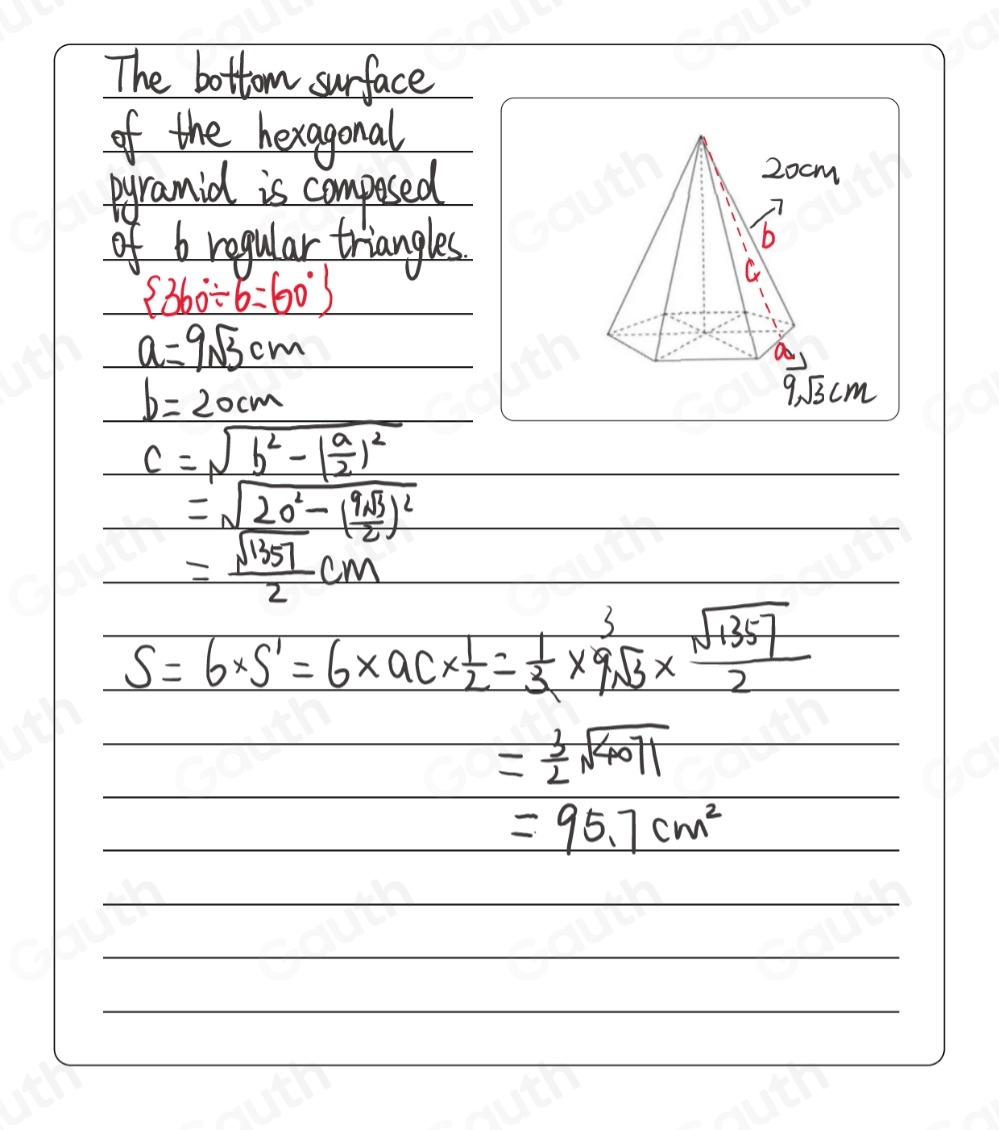 The bottom surface
of the hexagonal
pyramid is composed
of 6 regular triangles.
{360°÷6=60°}
a=9√3cm
b=20cm
c=√(b²-(a/2)²)
=√(20²-(9√3/2)²)
=√1357/2 cm
20cm
b
c
a
9√3cm
3
S=6×S'=6×ac×1/2=1/3×9√3×√1357/2
=3/2√4071
=95.7cm²
Gauth